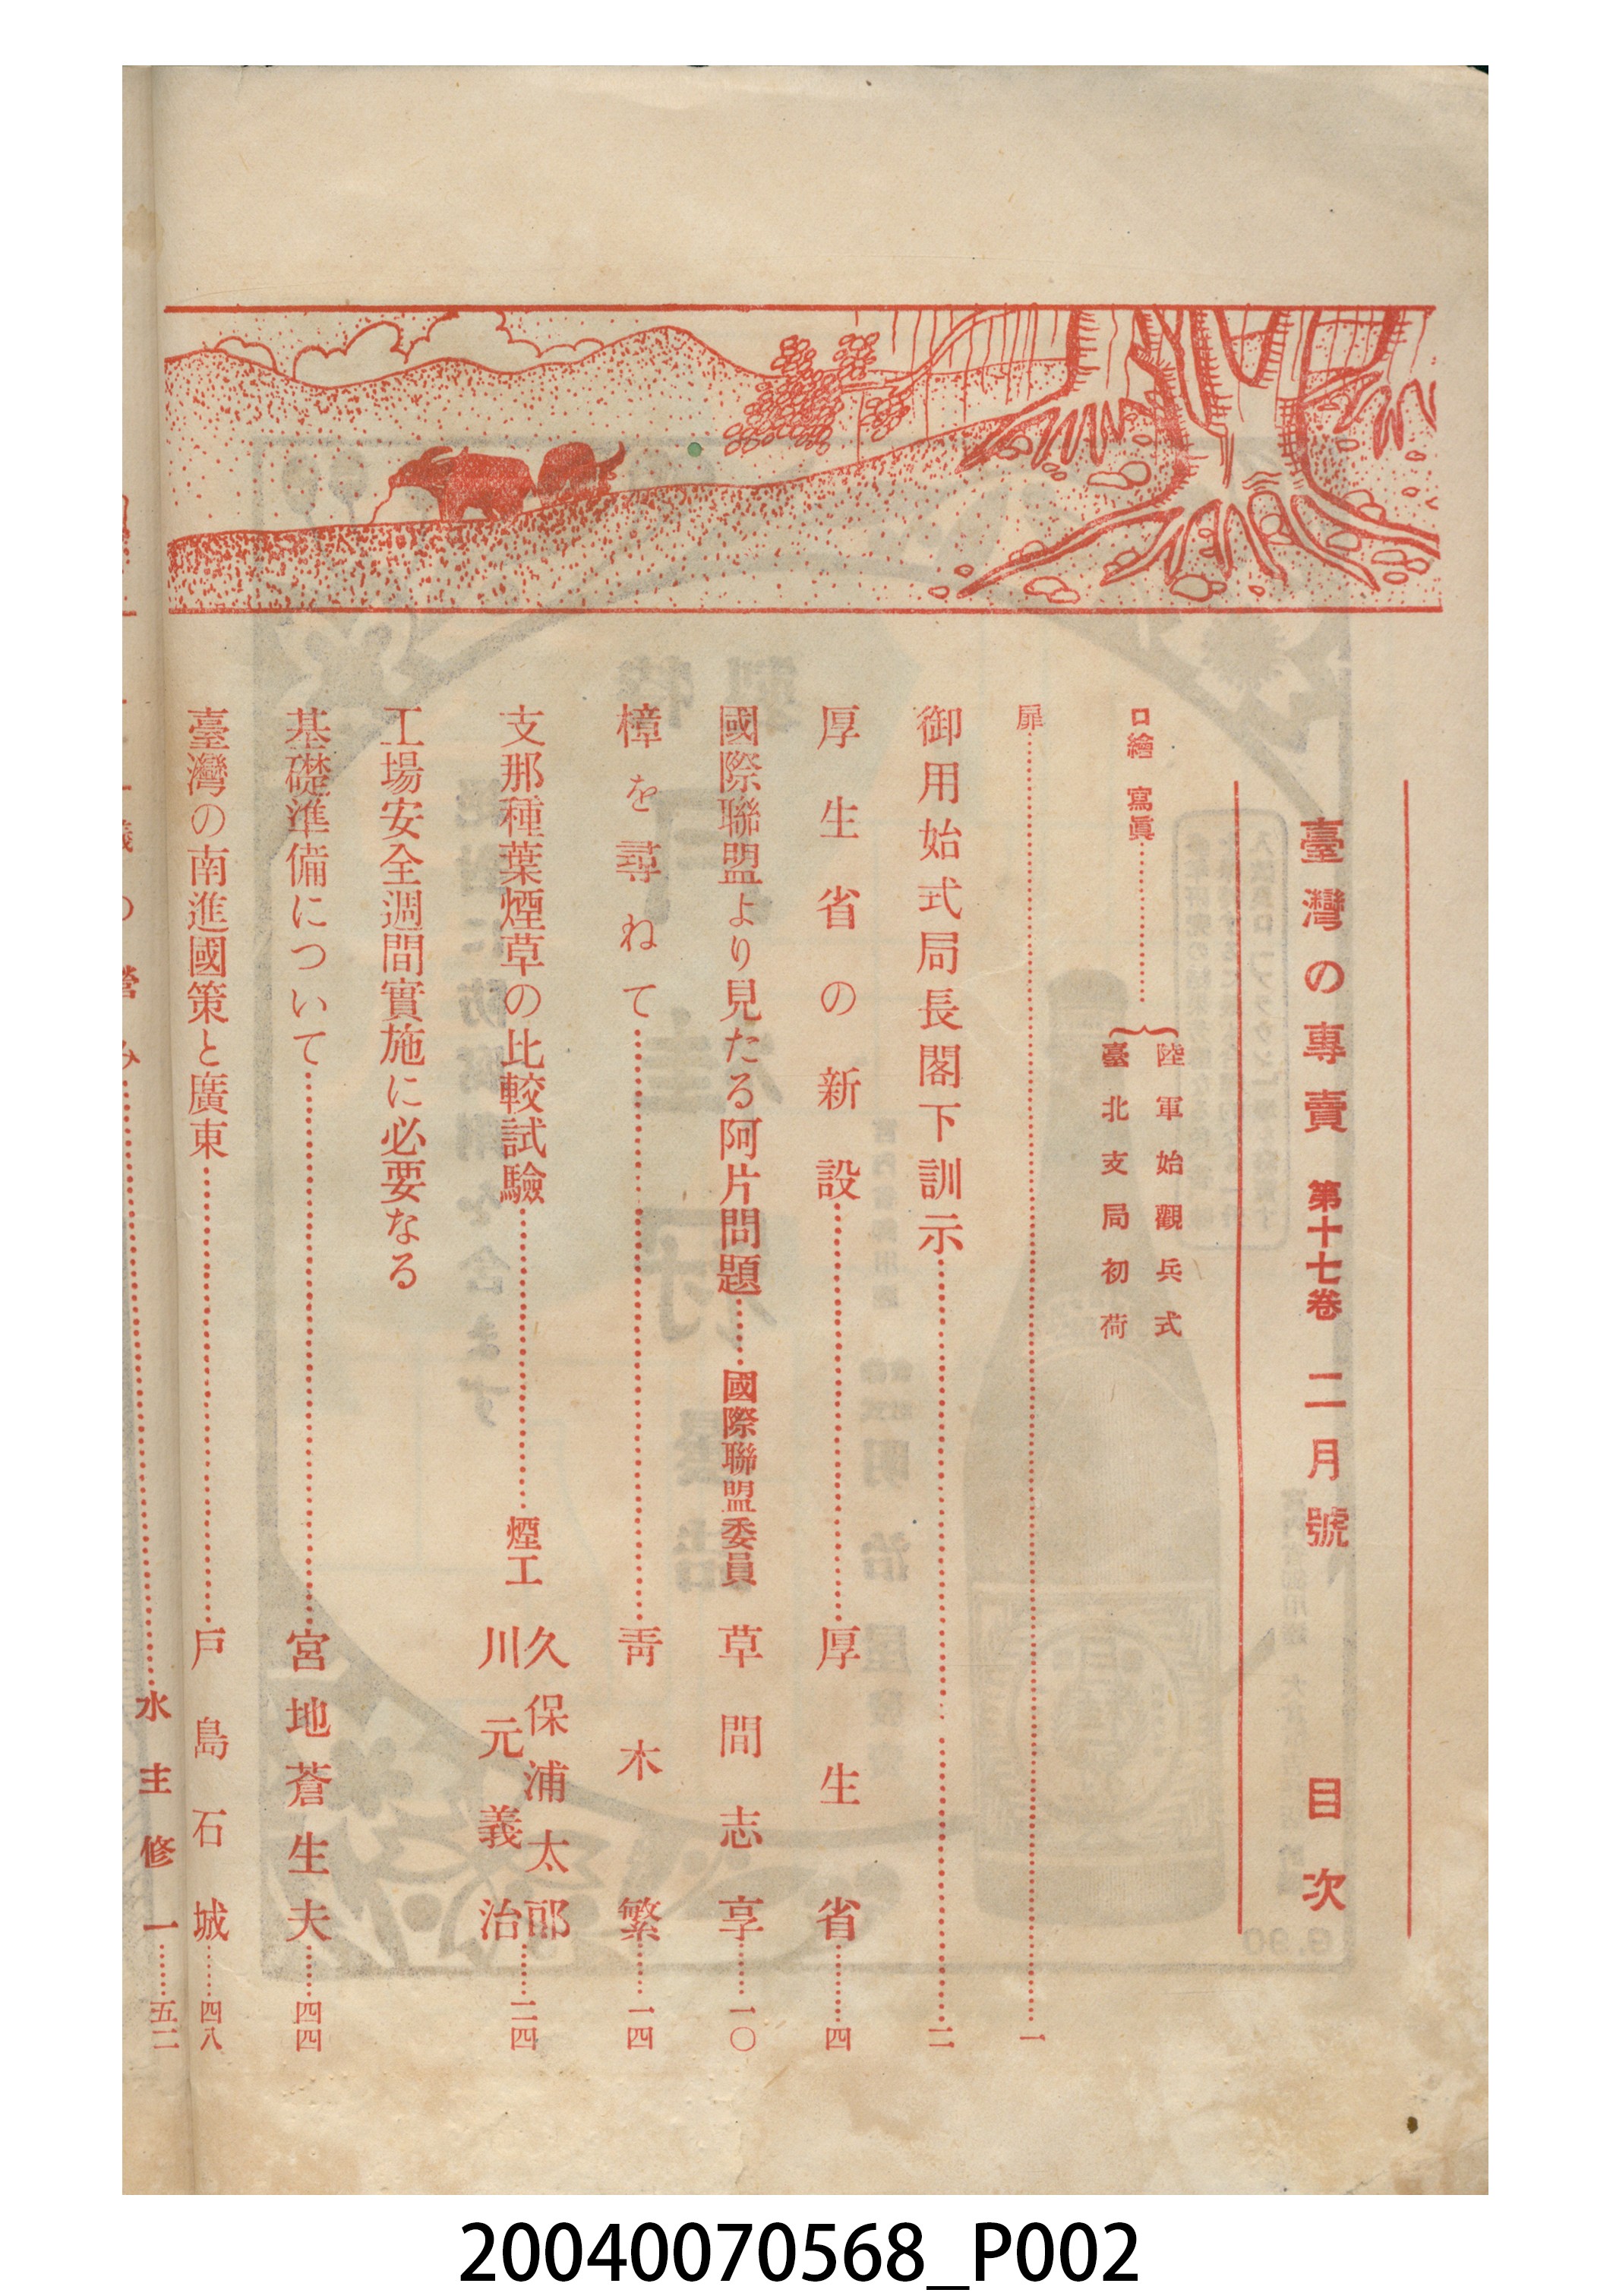 臺灣の專賣 第十七卷 二月號 目次
口繪 寫眞……
陸軍始觀兵式
臺北支局初荷
扉……一
御用始式局長閣下訓示……二
厚生省の新設……厚生省……四
國際聯盟より見たる阿片問題……國際聯盟委員 草間志享……一〇
樟を尋ねて……靑木繁……一四
支那種葉煙草の比較試驗……煙工 久保浦太郎 川元義治……二四
工場安全週間實施に必要なる
基礎準備について……宮地蒼生夫……四四
臺灣の南進國策と廣東……戶島石城……四八
の營み……水主修一……五二
20040070568_P002